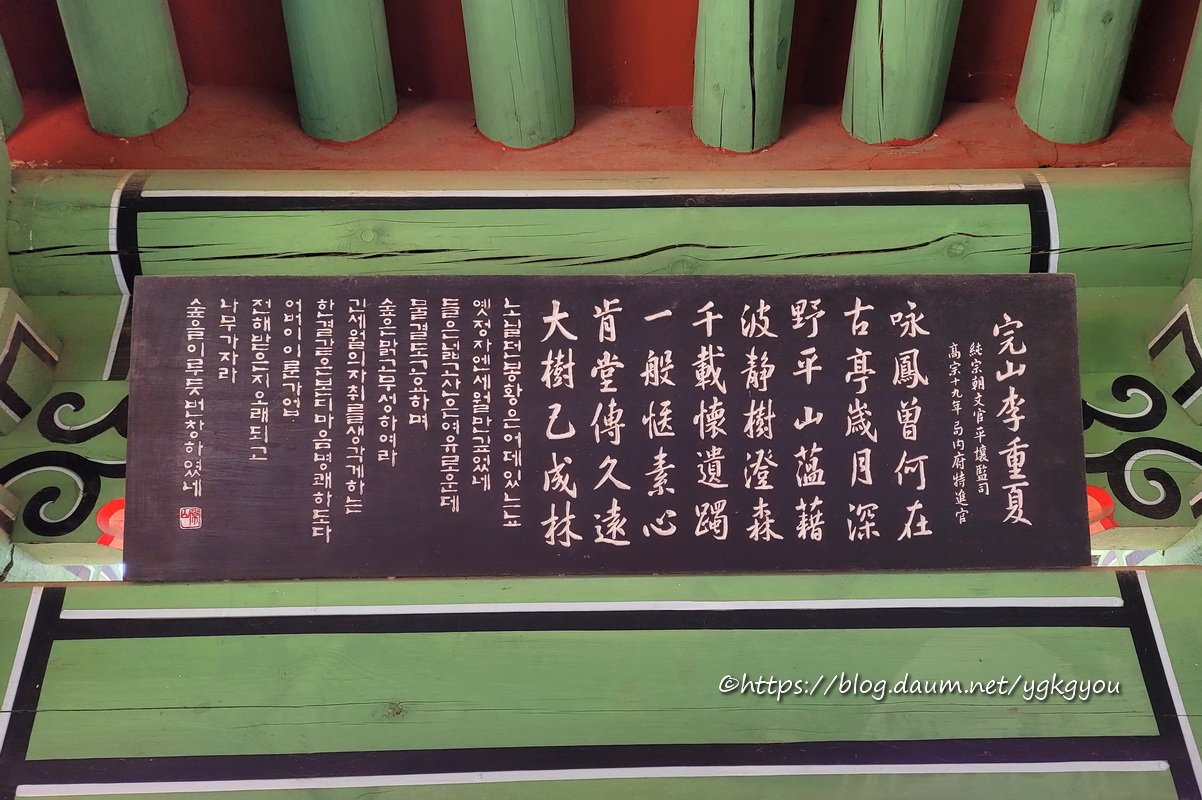 完山李重夏
純宗朝文官平壤監司
高宗十九年 局內府特進官
咏鳳曾何在
古亭歲月深
野平山薀藉
波靜樹澄森
千載懷遺躅
一般恢素心
肯堂傳久遠
大樹已成林
노닐던 봉황은 어데 있는뇨
옛 정자엔 세월만 깊었네
들은 넓고 산은 여유로운데
물결도 고요하며
숲은 맑고 무성하여라
긴 세월의 자취를 생각게 하는
한결같은 본디 마음 명쾌하도다
어버이 이룬 가업
전해 받은지 오래되고
나무가 자라
숲을 이루듯 번창하였네
©https://blog.daum.net/ygkgyou